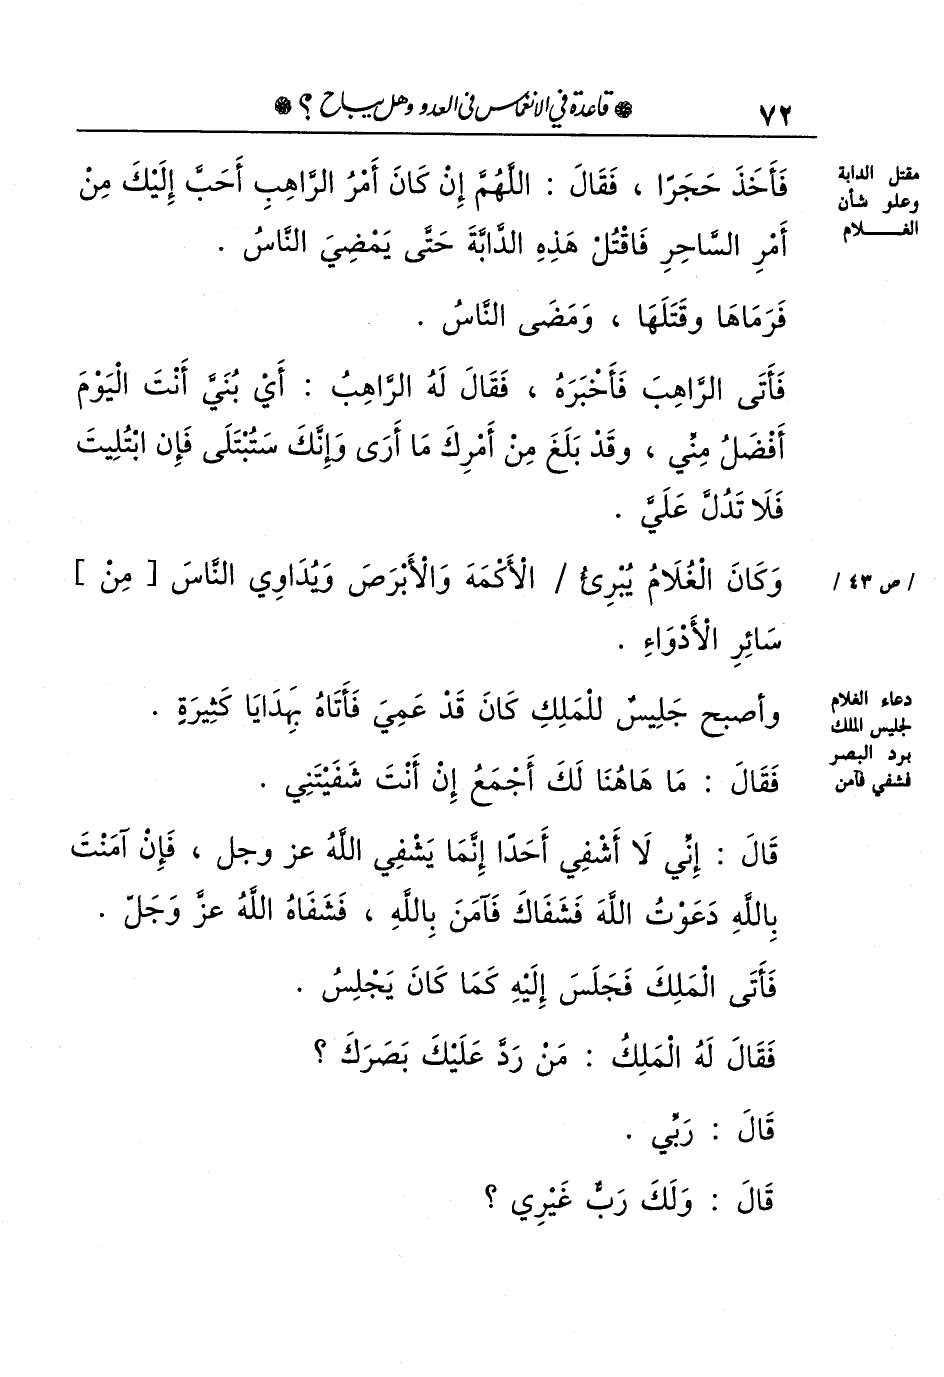 ٧٢
❁ قاعدة في الانغماس في العدو وهل يباح ؟ ❁
مقتل الدابة
وعلو شأن
الغـــلام
فَأَخَذَ حَجَرًا ، فَقَالَ : اللَّهُمَّ إِنْ كَانَ أَمْرُ الرَّاهِبِ أَحَبَّ إِلَيْكَ مِنْ
أَمْرِ السَّاحِرِ فَاقْتُلْ هَذِهِ الدَّابَّةَ حَتَّى يَمْضِيَ النَّاسُ .
فَرَمَاهَا وقَتَلَهَا ، وَمَضَى النَّاسُ .
فَأَتَى الرَّاهِبَ فَأَخْبَرَهُ ، فَقَالَ لَهُ الرَّاهِبُ : أَيْ بُنَيَّ أَنْتَ الْيَوْمَ
أَفْضَلُ مِنِّي ، وقَدْ بَلَغَ مِنْ أَمْرِكَ مَا أَرَى وَإِنَّكَ سَتُبْتَلَى فَإِن ابْتُلِيتَ
فَلَا تَدُلَّ عَلَيَّ .
/ ص ٤٣ /
وَكَانَ الْغُلَامُ يُبْرِئُ / الْأَكْمَهَ وَالْأَبْرَصَ وَيُدَاوِي النَّاسَ [ مِنْ ]
سَائِرِ الْأَدْوَاءِ .
دعاء الغلام
لجليس الملك
برد البصر
فشفي فآمن
وأصبح جَلِيسٌ للْمَلِكِ كَانَ قَدْ عَمِيَ فَأَتَاهُ بِهَدَايَا كَثِيرَةٍ .
فَقَالَ : مَا هَاهُنَا لَكَ أَجْمَعُ إِنْ أَنْتَ شَفَيْتَنِي .
قَالَ : إِنِّي لَا أَشْفِي أَحَدًا إِنَّمَا يَشْفِي اللَّهُ عز وجل ، فَإِنْ آمَنْتَ
بِاللَّهِ دَعَوْتُ اللَّهَ فَشَفَاكَ فَآمَنَ بِاللَّهِ ، فَشَفَاهُ اللَّهُ عزَّ وَجَلّ .
فَأَتَى الْمَلِكَ فَجَلَسَ إِلَيْهِ كَمَا كَانَ يَجْلِسُ .
فَقَالَ لَهُ الْمَلِكُ : مَنْ رَدَّ عَلَيْكَ بَصَرَكَ ؟
قَالَ : رَبِّي .
قَالَ : وَلَكَ رَبٌّ غَيْرِي ؟